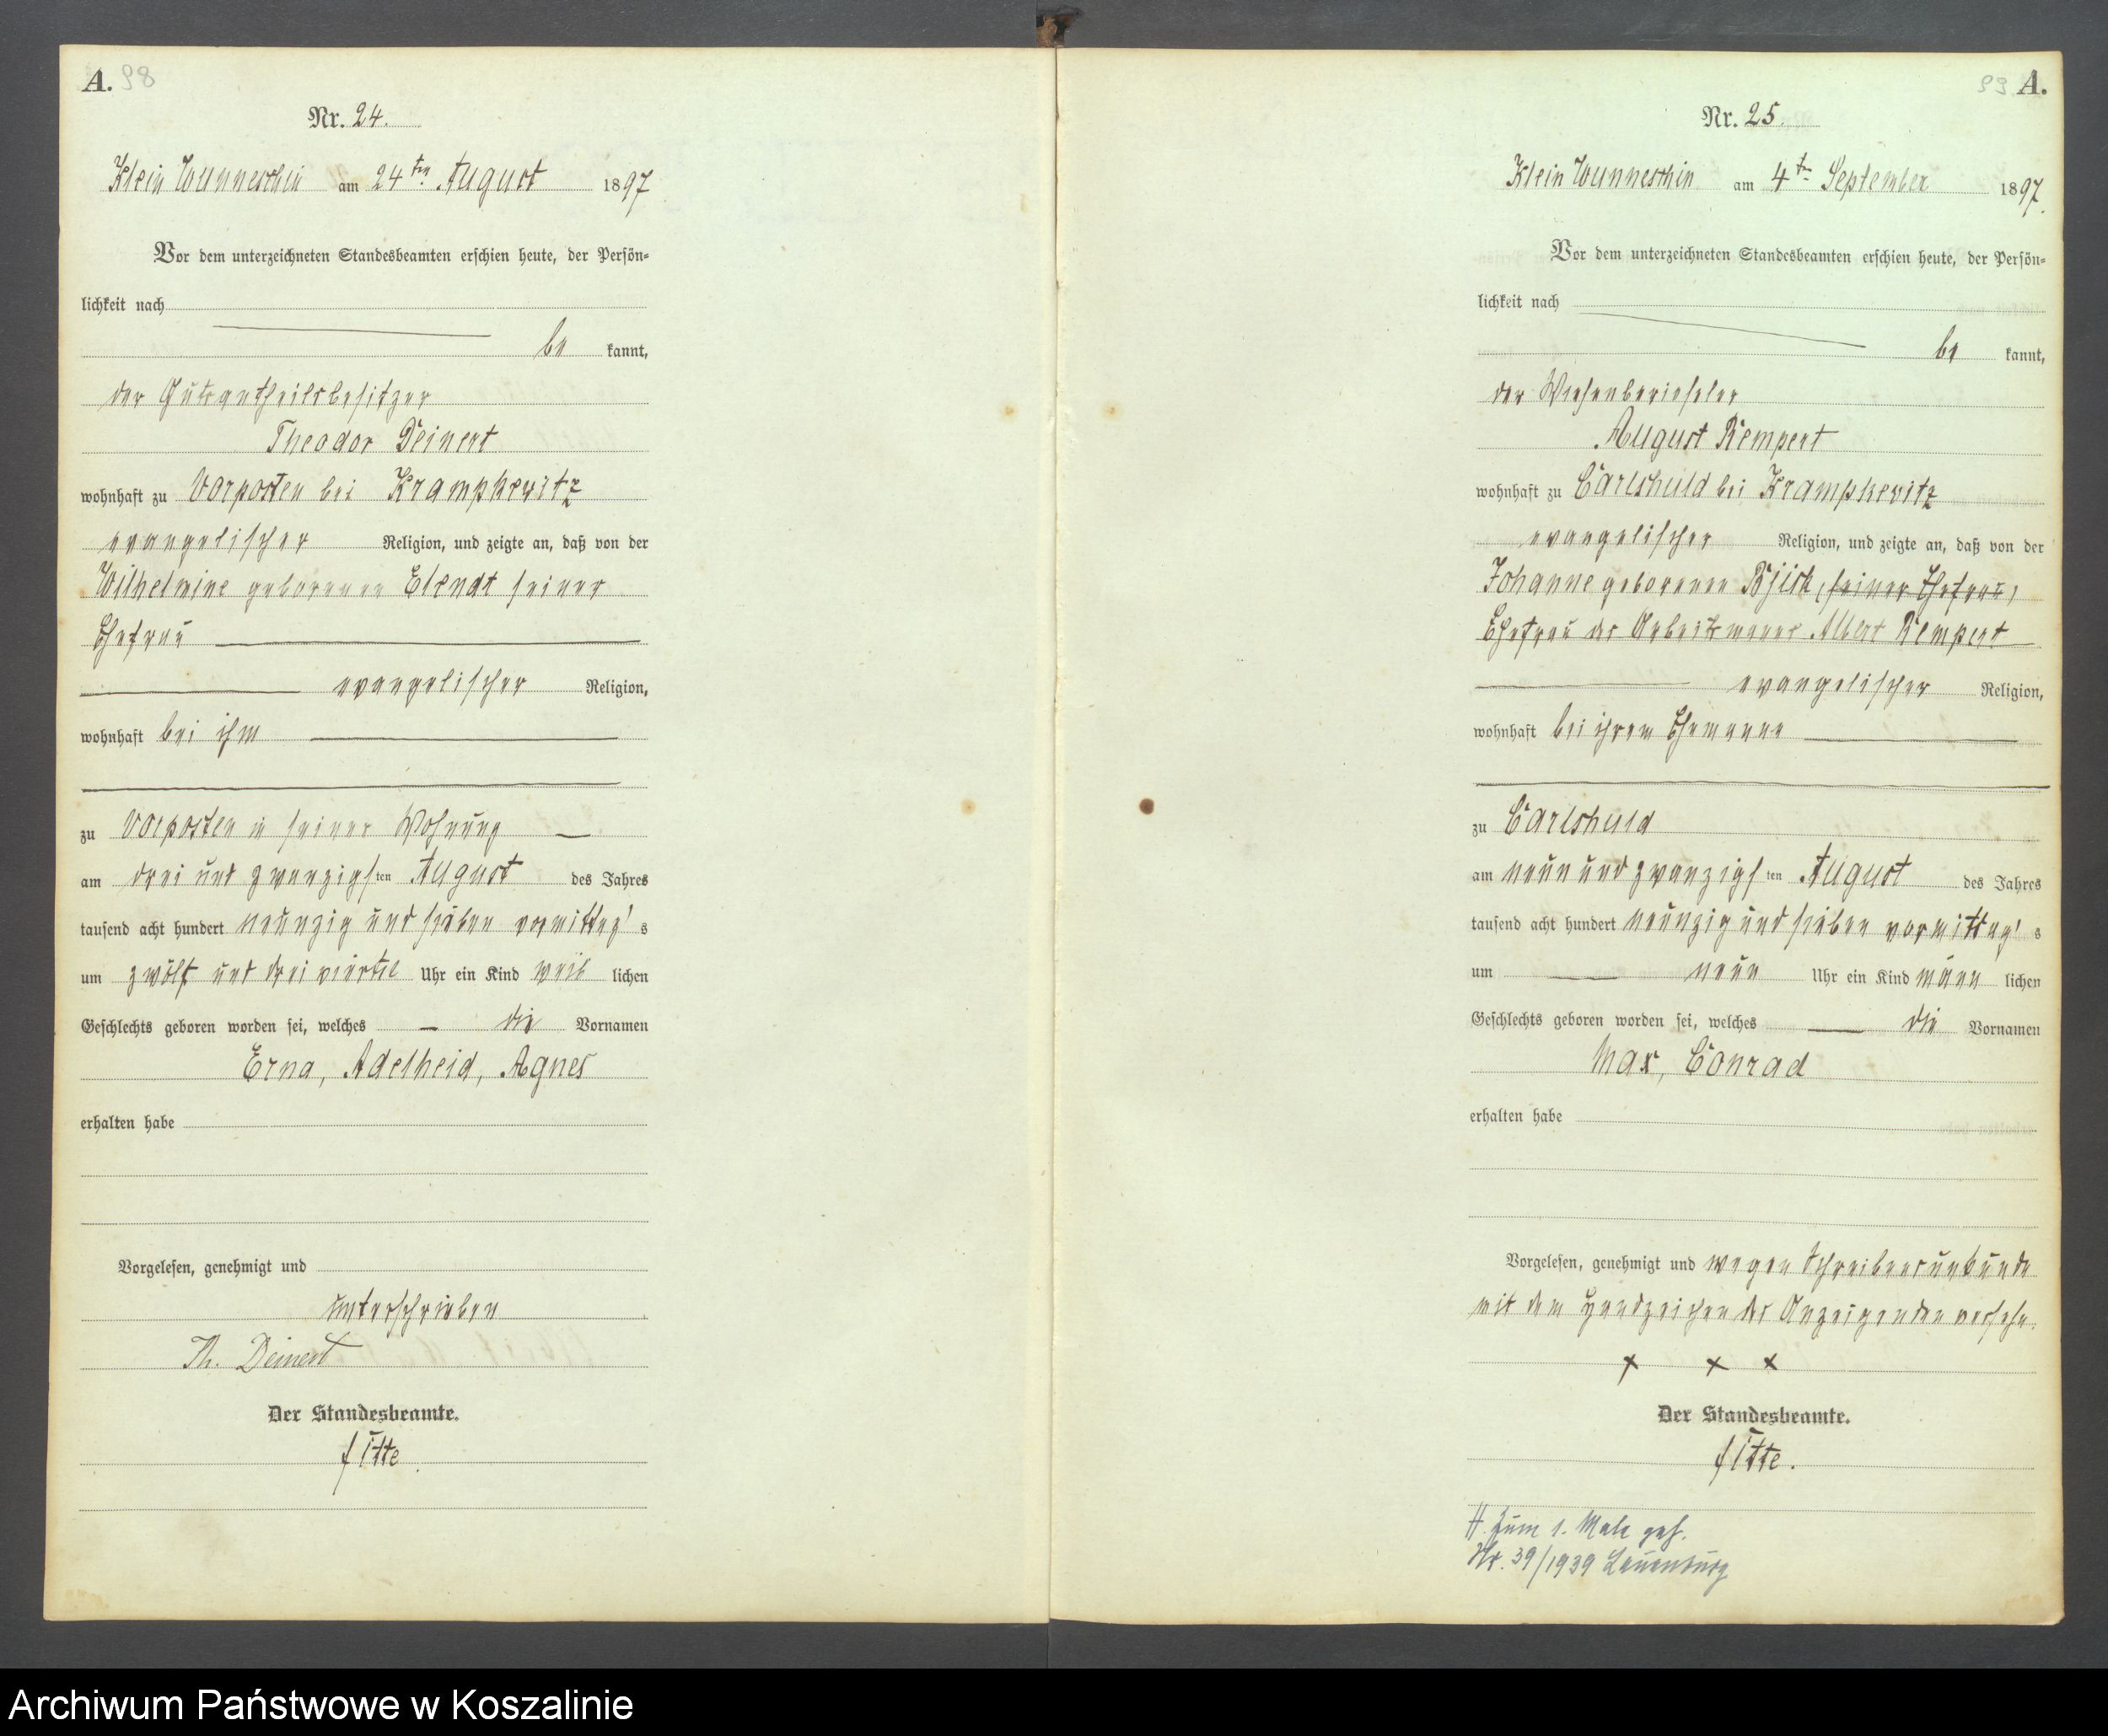 A. 98
Nr. 24.
Klein Wunneschin am 24ten August 1897
Vor dem unterzeichneten Standesbeamten erschien heute, der Persön-
lichkeit nach
be kannt,
der Gutsantheilsbesitzer
Theodor Deinert
wohnhaft zu Vorposten bei Krampkewitz
evangelischer Religion, und zeigte an, daß von der
Wilhelmine geborenen Elendt seiner
Ehefrau
evangelischer Religion,
wohnhaft bei ihm
zu Vorposten in seiner Wohnung
am drei und zwanzigsten August des Jahres
tausend acht hundert neunzig und sieben vormittag's
um zwölf und drei viertel Uhr ein Kind weib lichen
Geschlechts geboren worden sei, welches die Vornamen
Erna, Adelheid, Agnes
erhalten habe
Vorgelesen, genehmigt und
unterschrieben
Th. Deinert
Der Standesbeamte.
Fitte.
99 A.
Nr. 25.
Klein Wunneschin am 4ten September 1897.
Vor dem unterzeichneten Standesbeamten erschien heute, der Persön-
lichkeit nach
be kannt,
der Wiesenberieseler
August Rempert
wohnhaft zu Carlshuld bei Krampkewitz
evangelischer Religion, und zeigte an, daß von der
Johanne geborenen (seiner Ehefrau)
Ehefrau des Arbeitsmanns Albert Rempert
evangelischer Religion,
wohnhaft bei ihrem Ehemanne
zu Carlshuld
am neun und zwanzigsten August des Jahres
tausend acht hundert neunzig und sieben vormittag's
um neun Uhr ein Kind männ lichen
Geschlechts geboren worden sei, welches die Vornamen
Max, Conrad
erhalten habe
Vorgelesen, genehmigt und wegen Schreibensunkunde
mit dem Handzeichen des Anzeigenden versehn.
x x x
Der Standesbeamte.
Fitte.
H. zum 1. Male geh.
Nr. 39/1939 Lauenburg
Archiwum Państwowe w Koszalinie